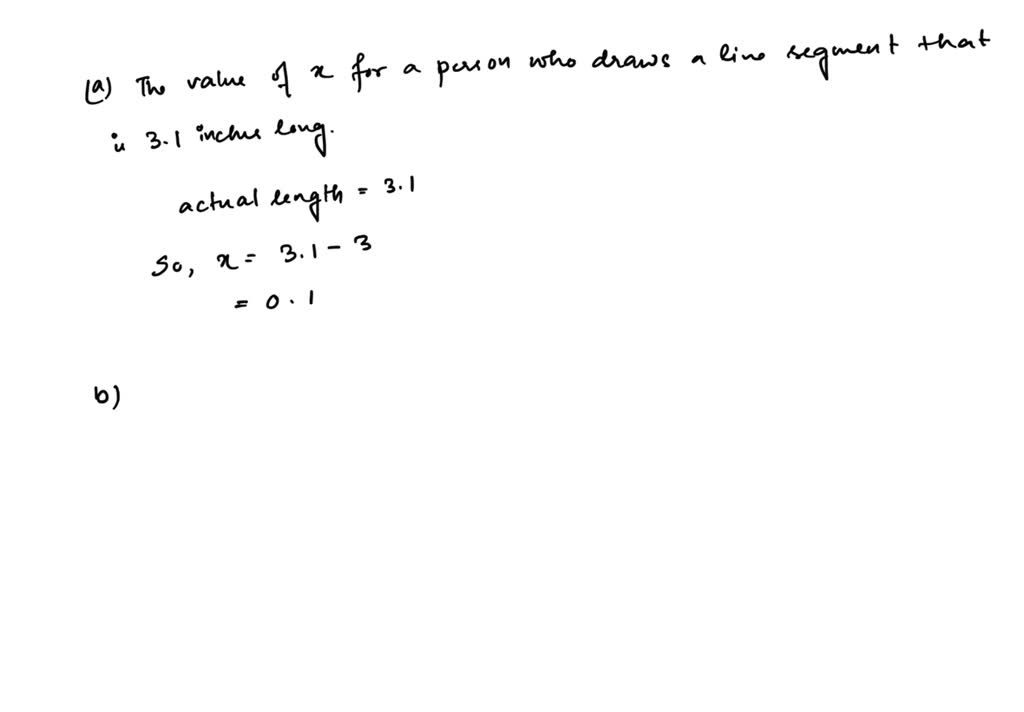 (a) The value of x for a person who draws a line segment that
is 3.1 inches long.
actual length = 3.1
So, x = 3.1 - 3
= 0.1
b)